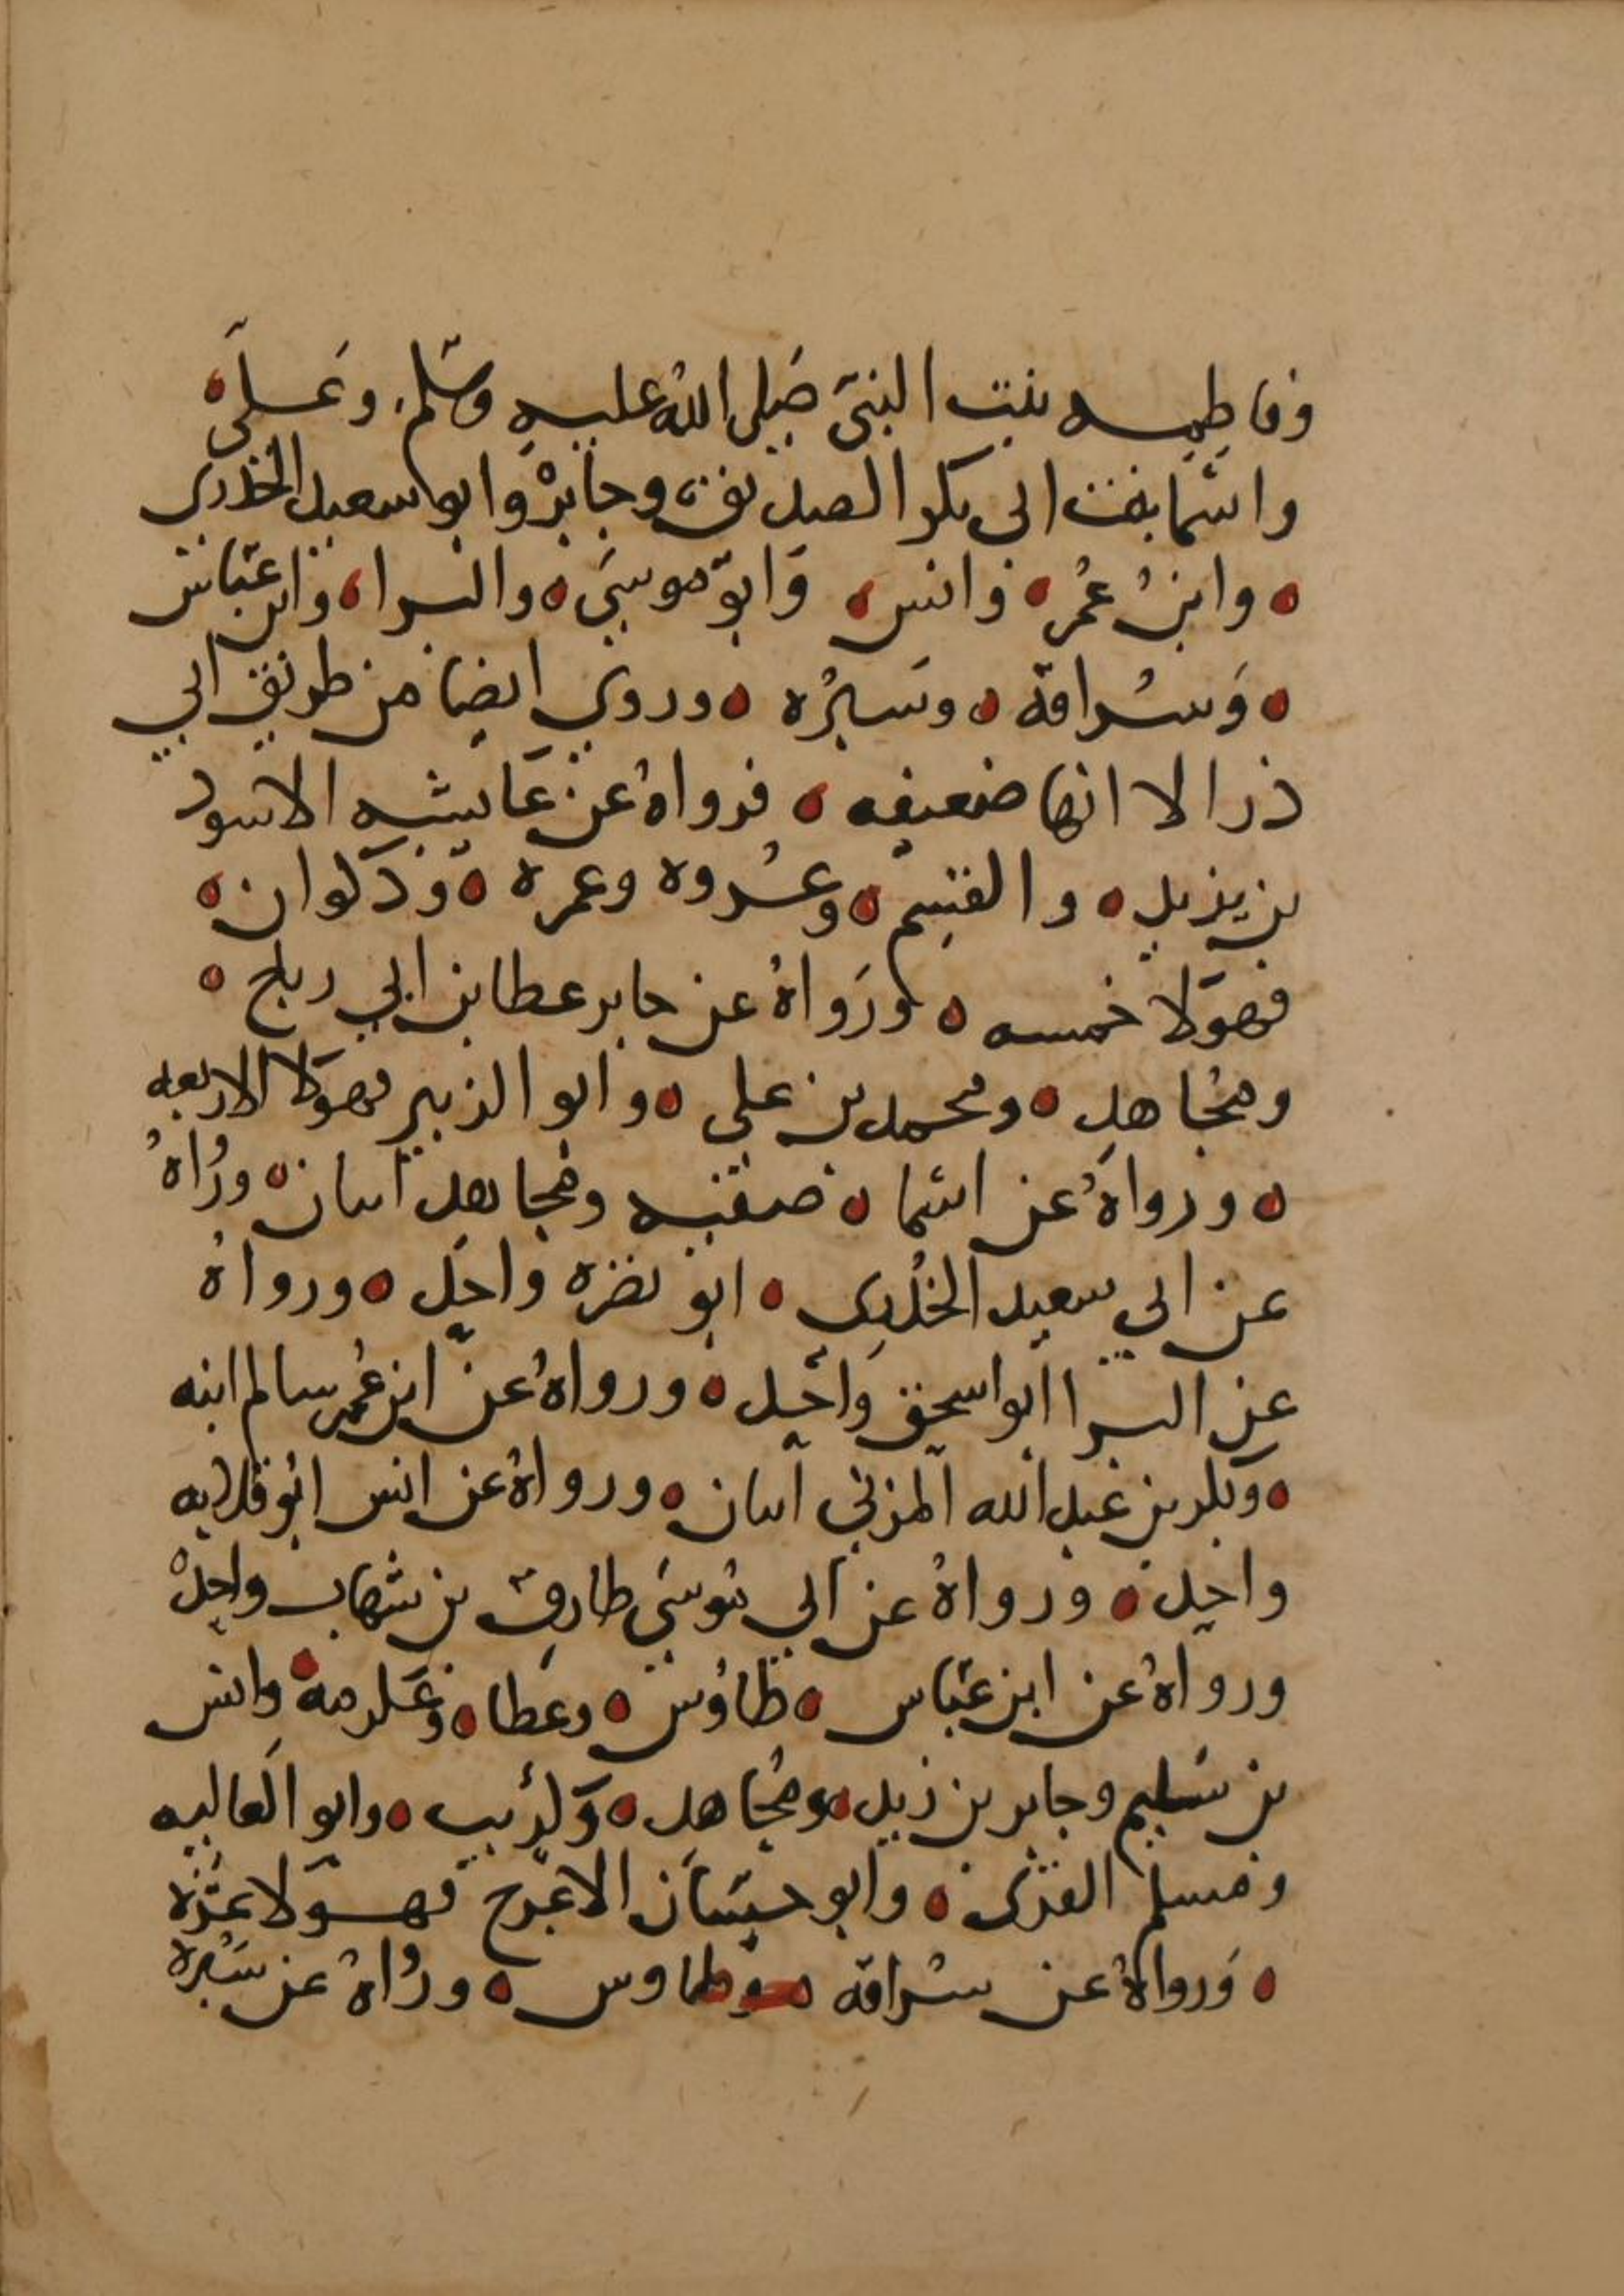 وفاطمه بنت النبي صلى الله عليه وسلم وعلي
واسما بنت ابي بكر الصديق وجابر وابو سعيد الخدري
وابن عمر وانس وابو موسى والبرا وابن عباس
وسراقة وسبره وروي ايضا من طريق ابي
ذر الا انها ضعيفه فرواه عن عايشه الاسود
بن يزيد والقسم وعروه وعمره وذكوان
فهولا خمسه ورواه عن جابر عطا بن ابي رباح
ومجاهد ومحمد بن علي وابو الزبير فهولا الاربعه
ورواه عن اسما صفيه ومجاهد اثنان ورواه
عن ابي سعيد الخدري ابو نضره واحد ورواه
عن البرا ابو اسحق واحد ورواه عن ابن عمر سالم ابنه
وبكر بن عبد الله المزني اثنان ورواه عن انس ابو قلابه
واحد ورواه عن ابي موسى طارق بن شهاب واحد
ورواه عن ابن عباس طاوس وعطا وعكرمة وانس
بن سليم وجابر بن زيد ومجاهد وكريب وابو العاليه
ومسلم القري وابو حسان الاعرج فهولا عشره
ورواه عن سراقة طاوس ورواه عن سبره